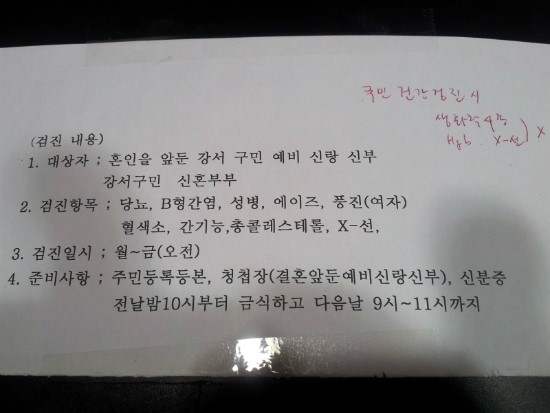 국민 건강검진시
Hgb X-선 ) X
(검진 내용)
1. 대상자 ; 혼인을 앞둔 강서 구민 예비 신랑 신부
강서구민 신혼부부
2. 검진항목 ; 당뇨, B형간염, 성병, 에이즈, 풍진(여자)
혈색소, 간기능,총콜레스테롤, X-선,
3. 검진일시 ; 월~금(오전)
4. 준비사항 ; 주민등록등본, 청첩장(결혼앞둔예비신랑신부), 신분증
전날밤10시부터 금식하고 다음날 9시~11시까지